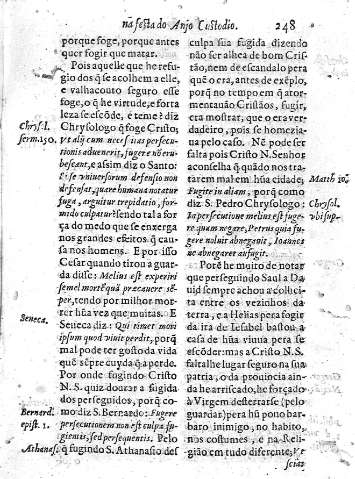 na festa do Anjo Custodio. 248
porque foge, porque antes
quer fogir que matar.
Pois aquelle que he refu-
gio dos q̃ se acolhem a elle,
e valhacouto seguro esse
foge, o q̃ he virtude, e forta
leza se escõde, e teme? diz
Chrysologo q̃ foge Cristo;
Ut alij cum necessitas persecu-
tionis advenerit, fugere nõ eru-
bescant, e assim diz o Santo:
Et se vniversorum defensio non
defensat, quare humana notatur
fuga, arguitur trepidatio, for-
mido culpatur? sendo tal a for
ça do medo que se enxerga
nos grandes effeitos q̃ cau-
sa nos homens. E por isso
Cesar quando tirou a guar-
da disse: Melius est experiri
semel mortẽ quã præcavere sẽ-
per, tendo por milhor mor-
rer hũa vez que muitas. E
Seneca diz: Qui timet movi
ipsum quod vivit perdit, porq̃
mal pode ter gosto da vida
quẽ sẽpre cuyda q̃ a perde.
Por onde fugindo Cristo
N. S. quiz dourar a fugida
dos perseguidos, porq̃ co-
mo diz S. Bernardo: Fugere
persecutionem non est culpa fu-
gientis, sed persequentis. Pelo
q̃ fugindo S. Athanasio des
Chrysol.
serm. 150.
Seneca.
Bernard.
epist. 1.
Athanas.
culpa sua fugida dizendo
não ser alhea de bom Cris-
tão, nem de escandalo pera
quẽ o era, antes de exẽplo,
porq̃ no tempo em q̃ ator-
mentauão Cristãos, fugir,
era mostrar, que o era ver-
dadeiro, pois se homezia-
ua pelo caso. Nẽ pode ser
falta pois Cristo N. Senhor
aconselha q̃ quãdo nos tra-
tarem mal em hũa cidade;
Fugite in aliam, porq̃ como
diz S. Pedro Chrysologo:
In persecutione melius est fuge-
re quam negare, Petrus quia fu-
gere noluit abnegavit, Ioannes
ne abnegaret aufugit.
Porẽ he muito de notar
que perseguindo Saul a Da
uid sempre achou a colhei-
ta entre os vezinhos da
terra, e a Helias pera fogir
da ira de Iesabel bastou a
casa de hũa viuua pera se
escõder: mas a Cristo N. S.
faltalhe lugar seguro na sua
patria, o da prouincia ain-
da he arriscado, he forçado
à Virgem desterrarse (pelo
guardar) pera hũ pouo bar-
baro inimigo, no habito,
nos costumes, e na Reli-
gião em tudo diferente; Ve
sciat
Matth. 10.
Chrysol.
vbi sup.